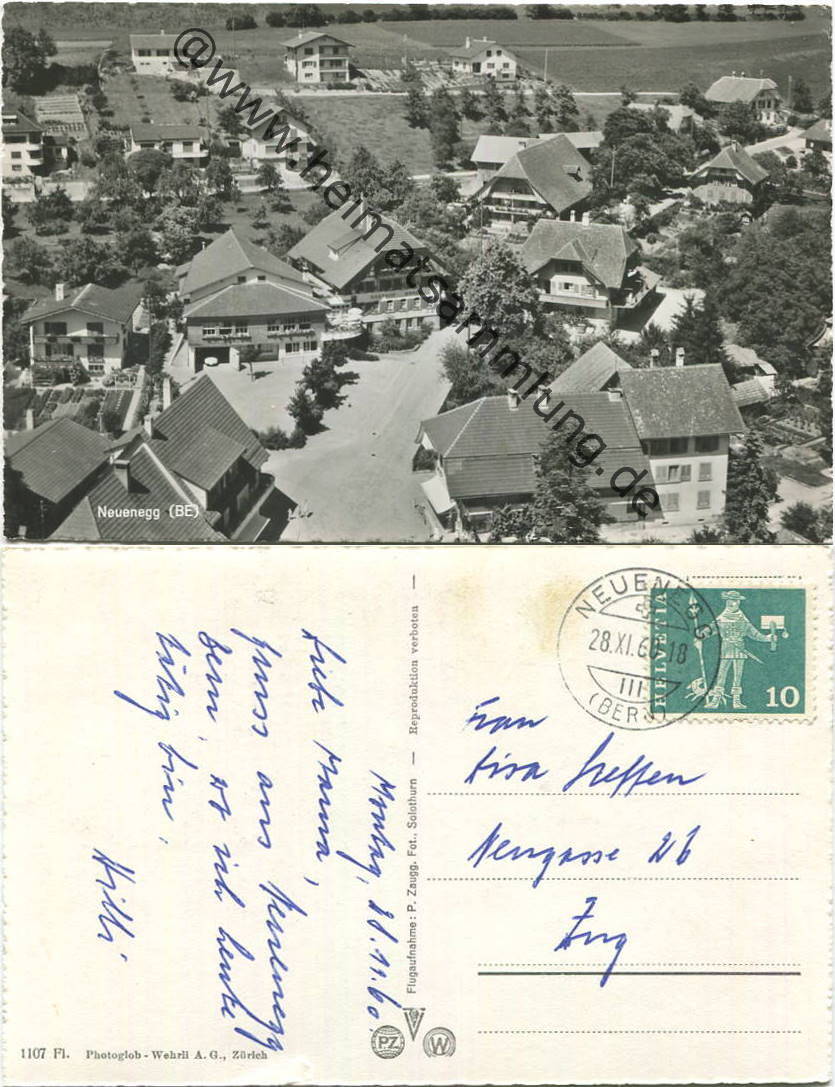 @www.heimatsammlung.de
Neuenegg (BE)
Montag, 28.11.60
Liebe Mama,
Gruss aus Neuenegg
Bern, wo ich heute
tätig bin,
Willi
Flugaufnahme: P. Zaugg. Fot., Solothurn — Reproduktion verboten —
NEUENEGG
28.XI.60-18
III
(BERN)
HELVETIA
10
Frau
Lisa Steffen
Neugasse 26
Zug
PZ
W
1107 Fl. Photoglob - Wehrli A. G., Zürich